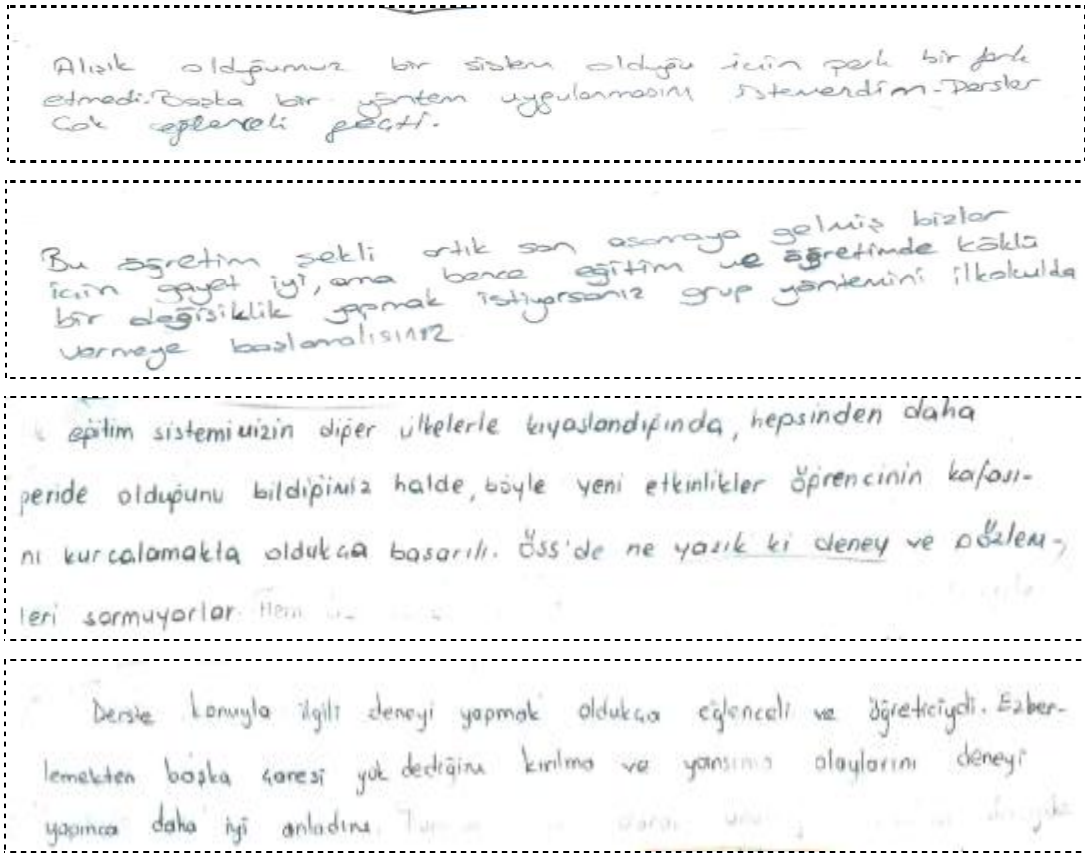 Alışık olduğumuz bir sistem olduğu için pek bir fark
etmedi. Başka bir yöntem uygulanmasını istemezdim. Dersler
Çok eğlenceli geçti.
Bu öğretim şekli artık son aşamaya gelmiş bizler
için gayet iyi, ama bence eğitim ve öğretimde köklü
bir değişiklik yapmak istiyorsanız grup yöntemini ilkokulda
vermeye başlamalısınız
eğitim sistemimizin diğer ülkelerle kıyaslandığında, hepsinden daha
geride olduğunu bildiğimiz halde, böyle yeni etkinlikler öğrencinin kafası-
nı kurcalamakta oldukça başarılı. ÖSS'de ne yazık ki deney ve gözlem-
leri sormuyorlar. Hem
Derste konuyla ilgili deneyi yapmak oldukça eğlenceli ve öğreticiydi. Ezber-
lemekten başka çaresi yok dediğim kırılma ve yansıma olaylarını deneyi
yapınca daha iyi anladım.